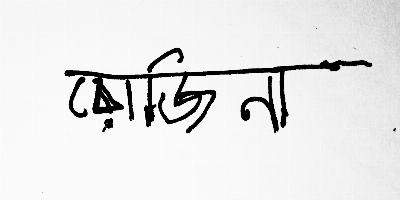 রোজিনা